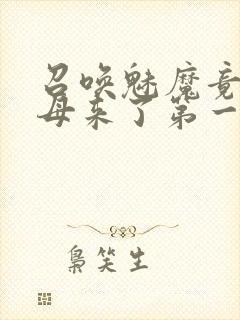 召唤魅魔竟
母来了第一
枭笑生